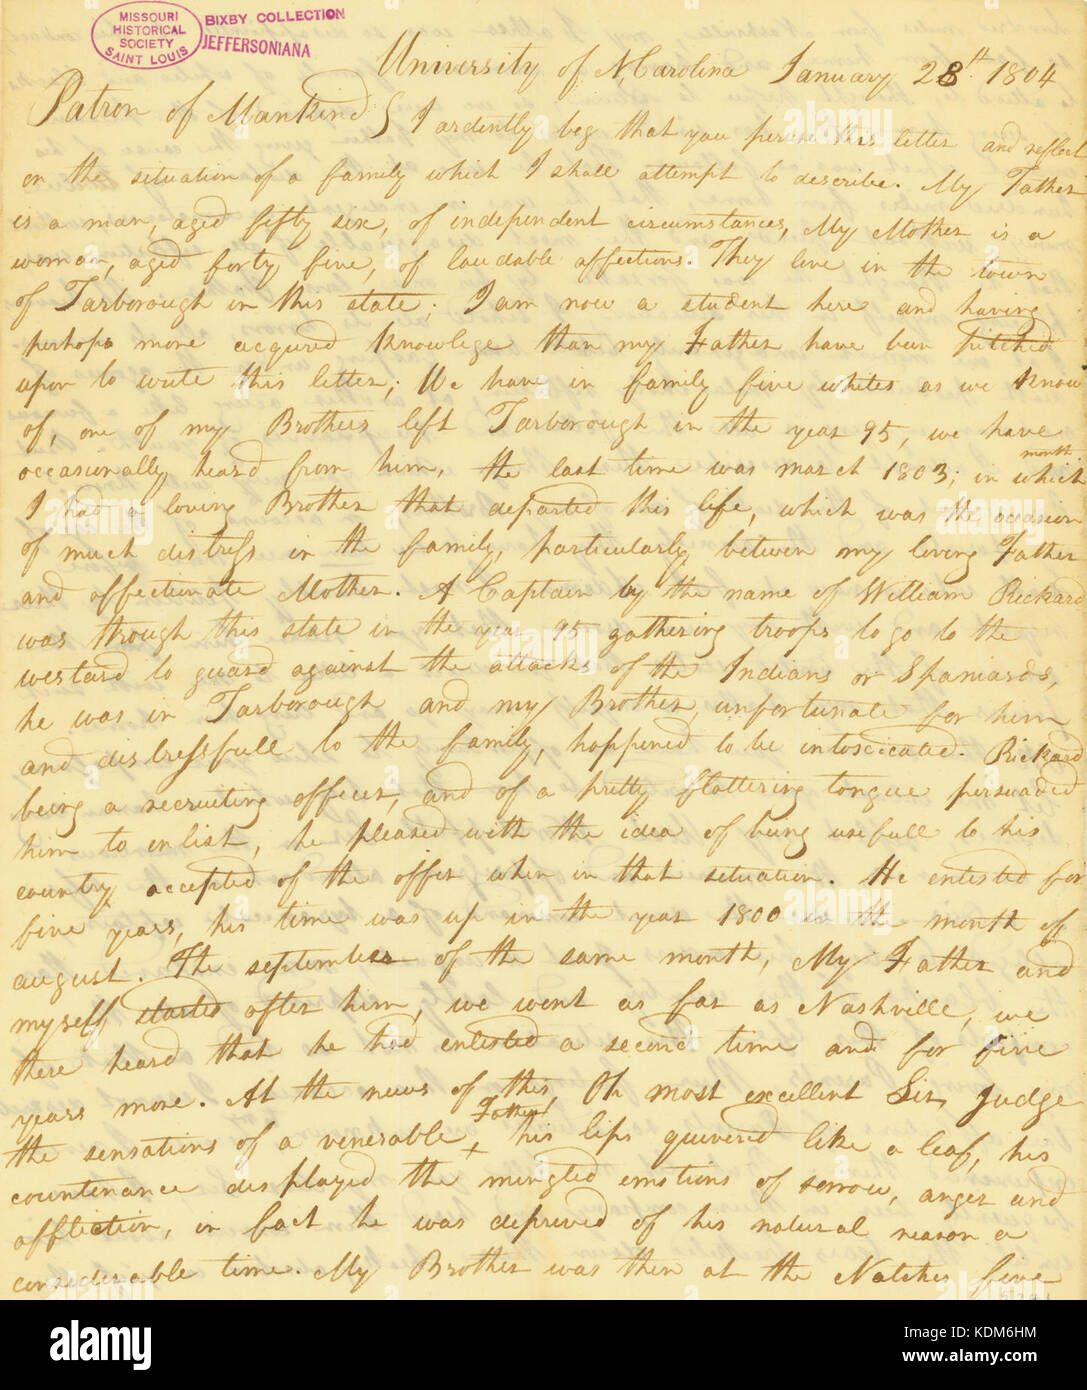 MISSOURI
HISTORICAL
SOCIETY
SAINT LOUIS
BIXBY COLLECTION
JEFFERSONIANA
University of N,Carolina January 28th 1804
Patron of Mankind } I ardently beg that you peruse this letter and reflect
on the situation of a family which I shall attempt to describe. My Father
is a man, aged fifty six, of independent circumstances, My Mother is a
woman, aged forty five, of laudable affections. They live in the town
of Tarborough in this state; I am now a student here and having
perhaps more acquired knowlege than my Father have been pitched
upon to write this letter; We have in family five whites as we know
of, one of my Brothers left Tarborough in the year 95, we have
occasionally heard from him, the last time was march 1803; in which month
I had a loving Brother that departed this life, which was the occasion
of much distress in the family, particularly between my loving Father
and affectionate Mother. A Captain by the name of William Rickard
was through this state in the year 95 gathering troops to go to the
westard to guard against the attacks of the Indians or Spaniards,
he was in Tarborough and my Brother, unfortunate for him
and distressfull to the family, happened to be intoxicated. Rickard
being a recruiting officer, and of a pretty flattering tongue persuaded
him to enlist, he pleased with the idea of being usefull to his
country accepted of the offer when in that situation. He enlested for
five years, his time was up in the year 1800 in the month of
august. The september of the same month, My Father and
myself started after him, we went as far as Nashville, we
there heard that he had enlested a second time and for five
years more. At the news of this, Oh most excellent Sir, judge
the sensations of a venerable Father, his lips quivered like a leaf, his
countenance displayed the mingled emotions of sorrow, anger and
affliction, in fact he was deprived of his natural reason a
considerable time. My Brother was then at the Natches five
alamy
Image ID: KDM6HM
www.alamy.com